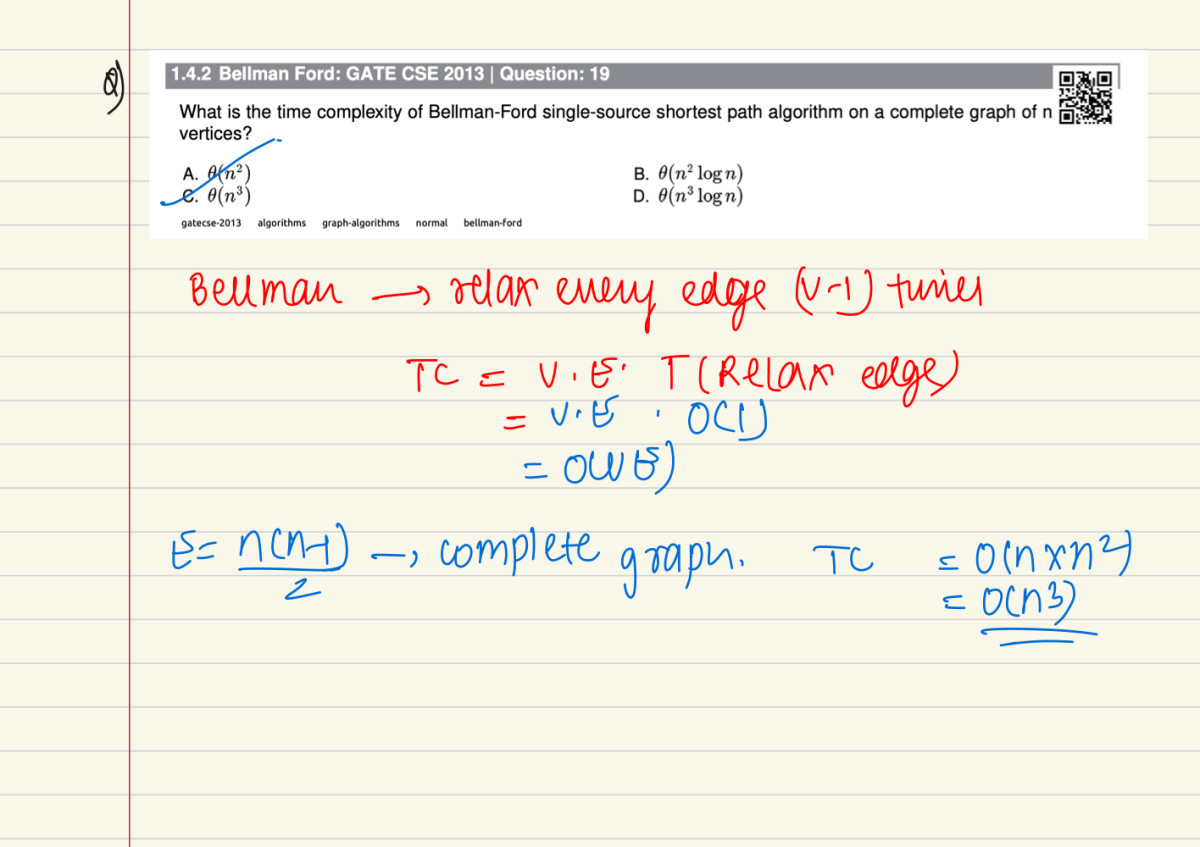 Q)
1.4.2 Bellman Ford: GATE CSE 2013 | Question: 19
What is the time complexity of Bellman-Ford single-source shortest path algorithm on a complete graph of n
vertices?
A. θ(n²) B. θ(n² log n)
C. θ(n³) D. θ(n³ log n)
gatecse-2013 algorithms graph-algorithms normal bellman-ford
Bellman → relax every edge (V-1) times
TC = V.E. T(Relax edge)
= V.E . O(1)
= O(VE)
E = n(n-1)/2 → complete graph. TC = O(n×n²)
= O(n3)